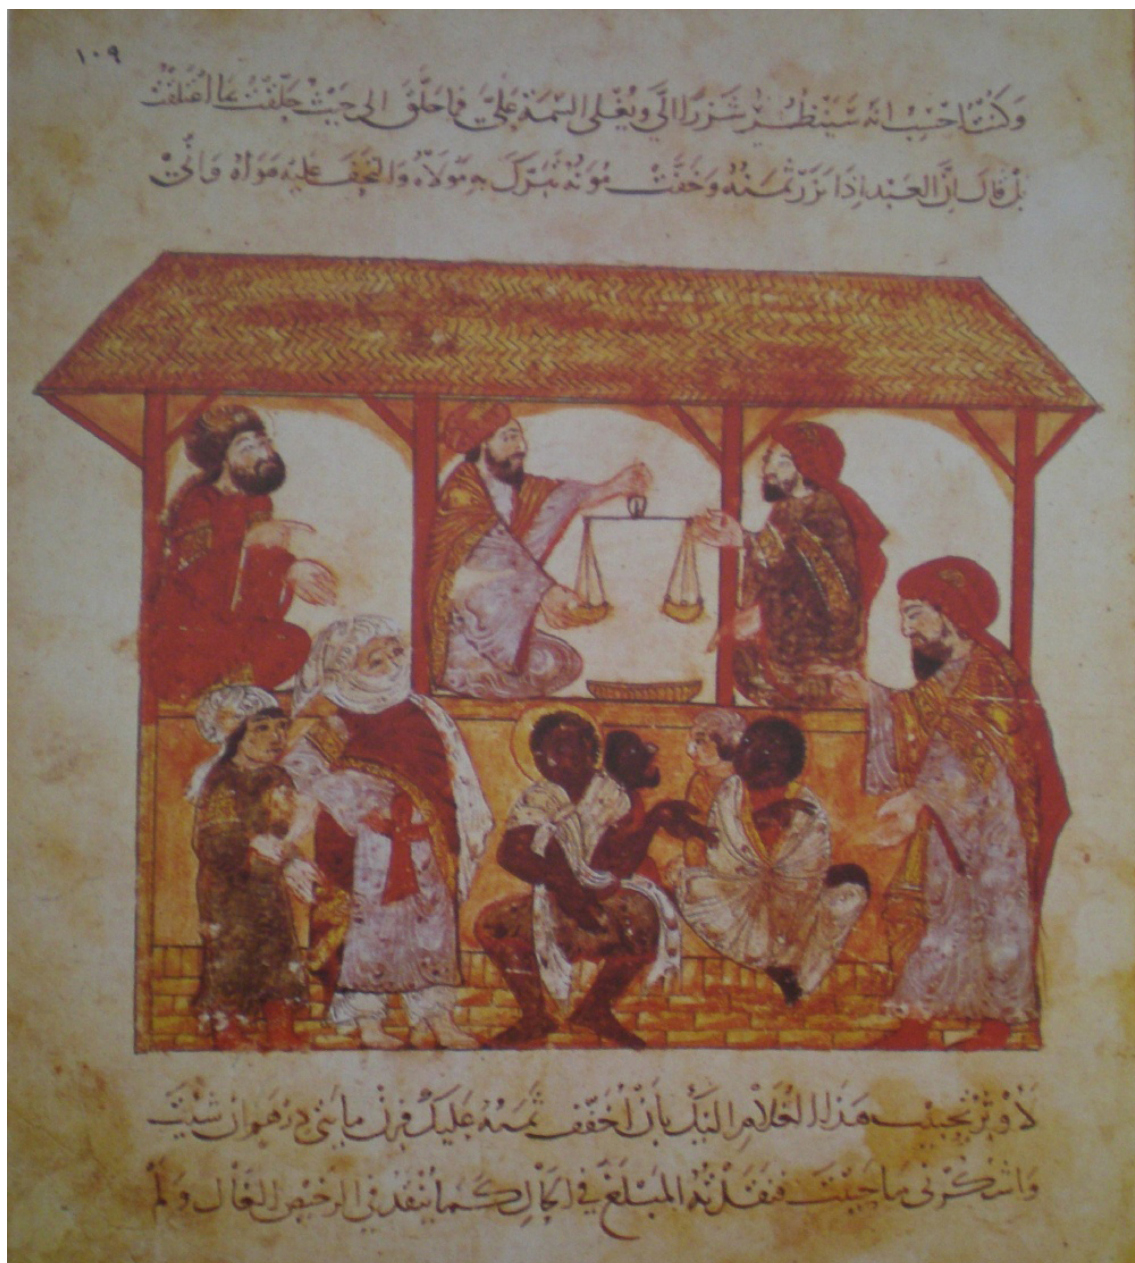 ١٠٩
وَكُنْتُ احْسِبُ انه سَيَنْظُرُ شَزَرًا الَيَّ ويُغْلى السِّيمَةَ عَلَيّ فما حَلَّقَ الى حَيْثُ حَلَّقْتُ اعْتَلَقْتُ
بلْ قال إنَّ العَبْد إذَا نَزَرَ ثمَنُهُ وَخَفَّتْ مُوَنُهُ تَبَرَّكَ بهِ مَوْلاهُ وَالتَحَفَ عليْهِ هَوَاهُ وَانّى
لأوثِرُ تحْبِيبَ هَذا الغُلامِ اليْكَ بأنْ أخَفِّفَ ثمَنَهُ عليكَ فزِنْ مايتى درْهم ان شيْتَ
وَاشكُرْنى ما حَيِيتَ فنَقَدْتُهُ المَبْلَغَ في الحَالِ كَمَا يُنْقَدُ في الرَّخيْصِ الغَالِ وَلمْ